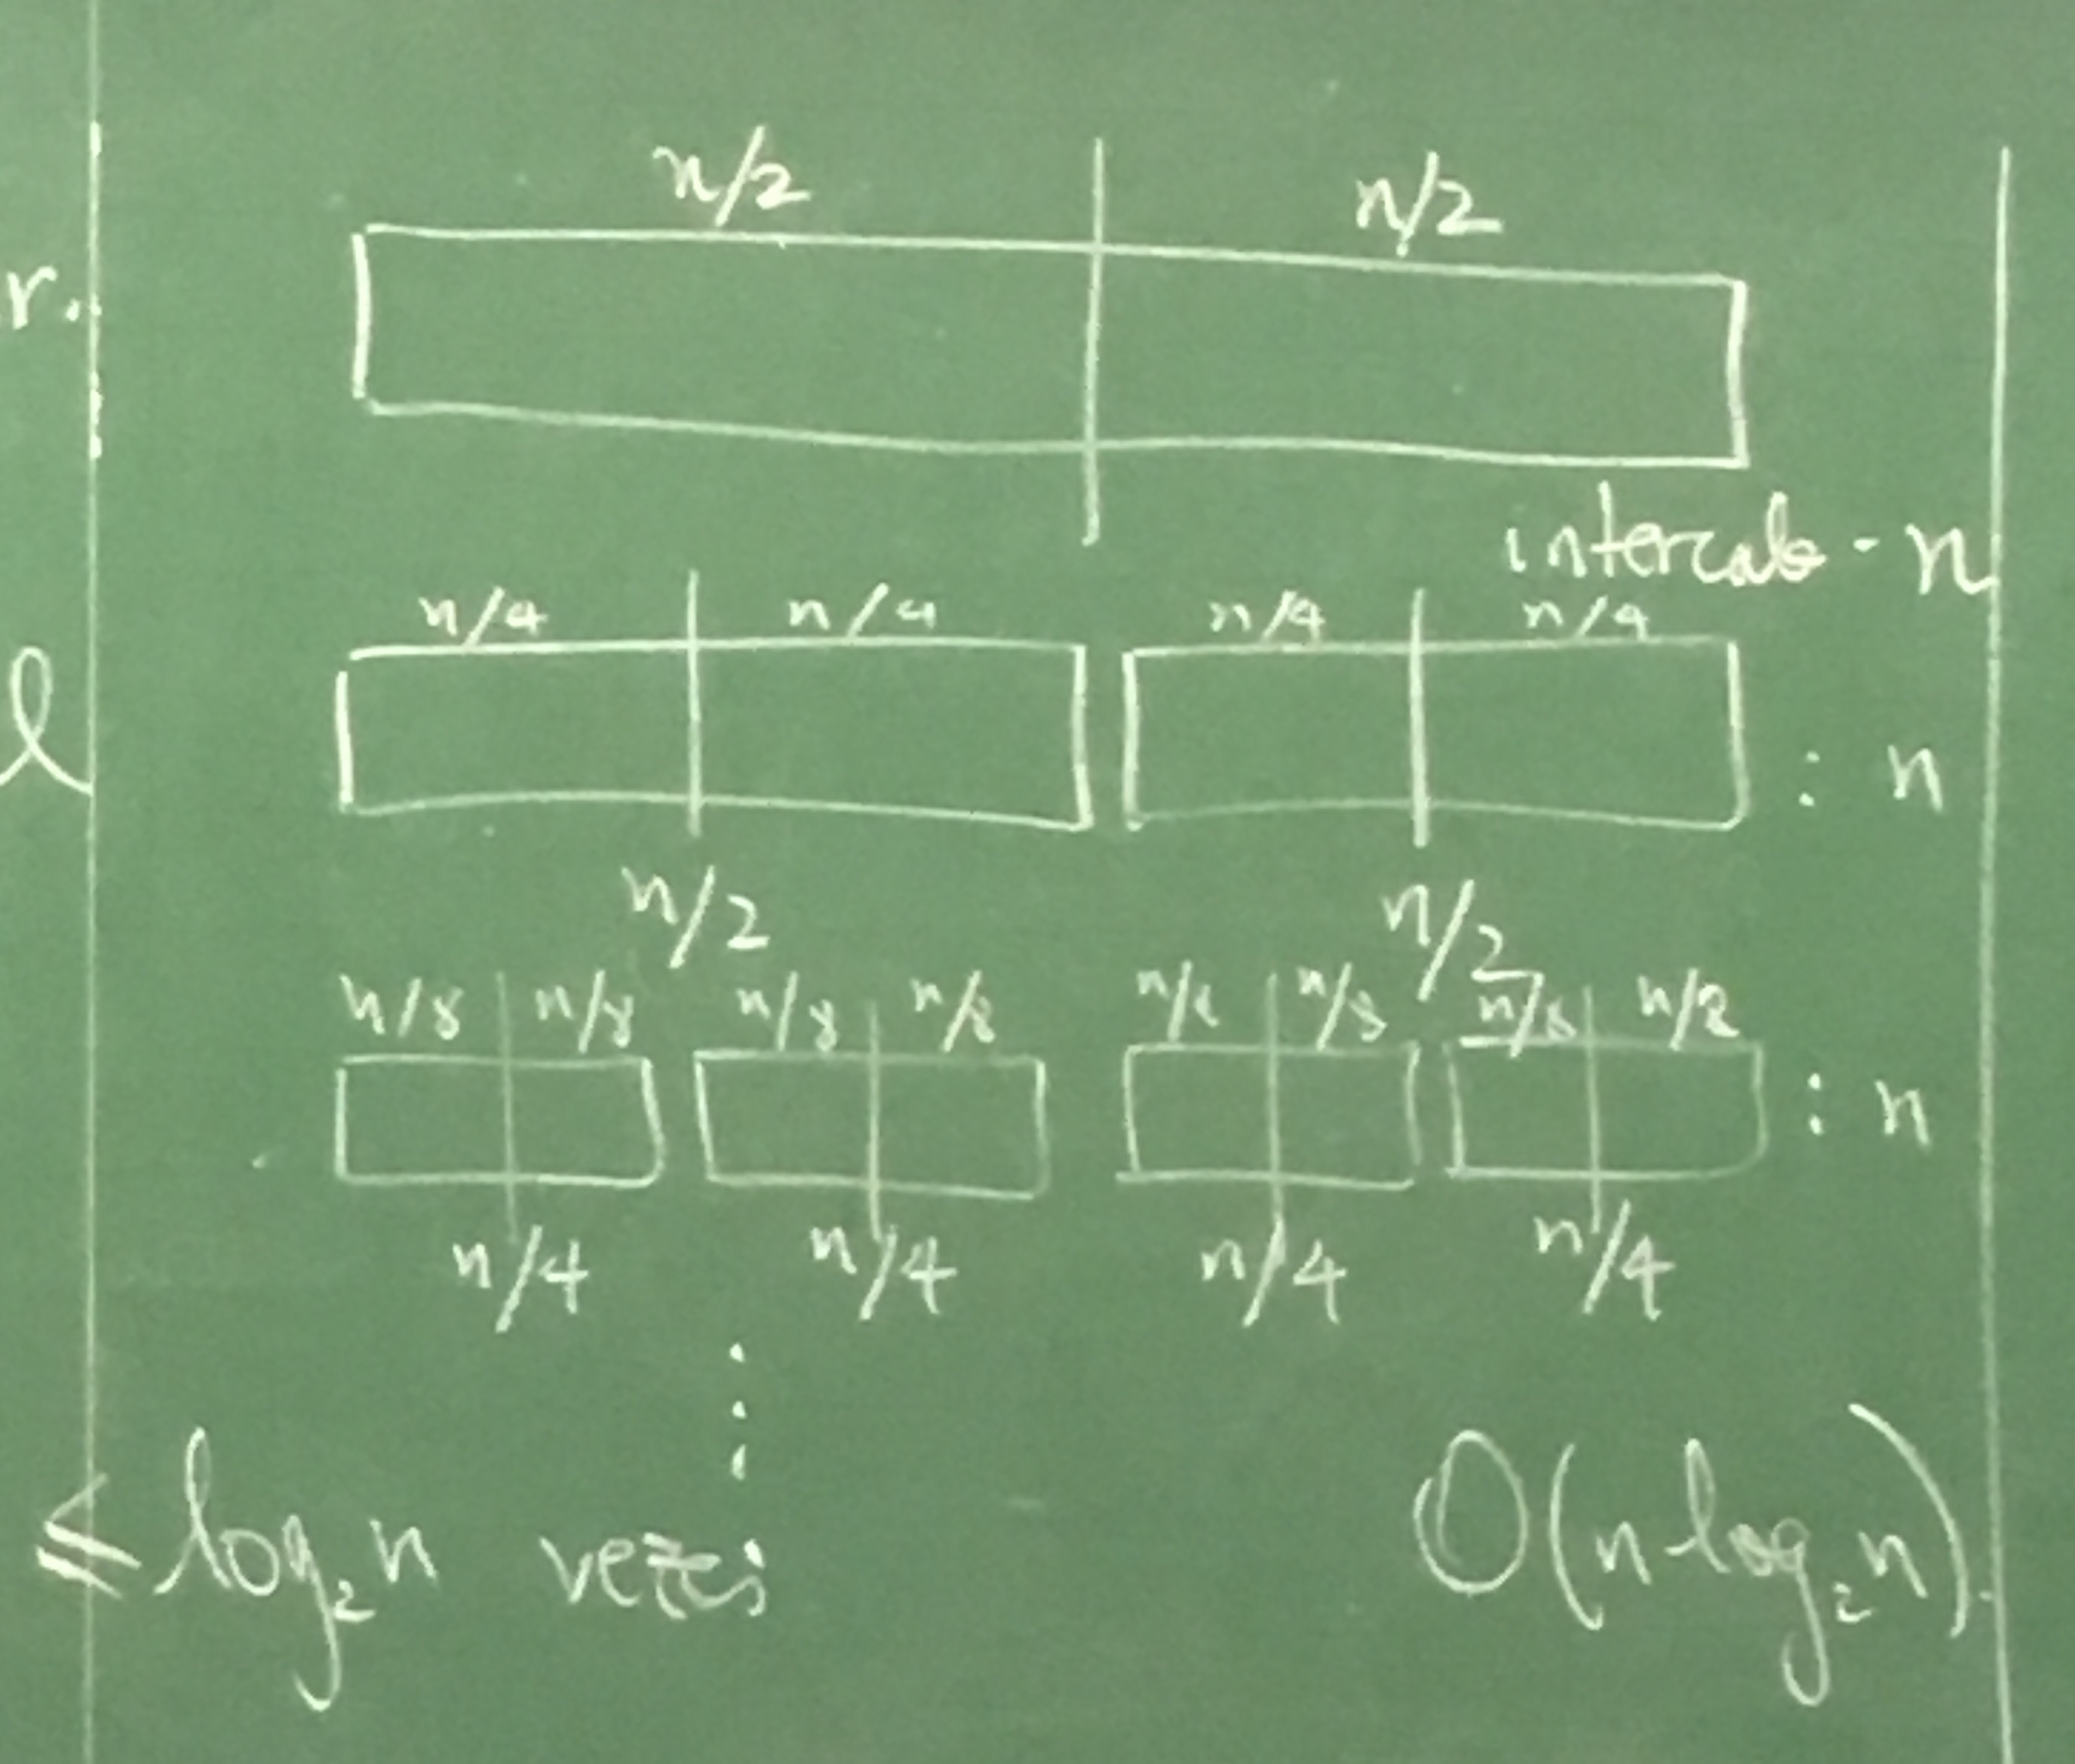 n/2 n/2
r.
intercala - n
n/4 n/4 n/4 n/4
l
: n
n/2 n/2
n/8 n/8 n/8 n/8 n/8 n/8 n/8 n/8
: n
n/4 n/4 n/4 n/4
⋮
≤ log₂n vezes
O(n log₂n).